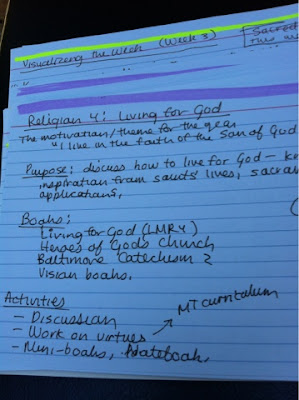 Visualizing the Week (Week 3)
Sacred
This
Religion 4: Living for God
The motivation/theme for the year
"I live in the faith of the Son of God
Purpose: discuss how to live for God - ke
inspiration from saints' lives, sacra
applications,
Books:
Living for God (LMR4)
Heroes of Gods Church
Baltimore Catechism 2
Vision books,
Activities
MT curriculum
- Discussion
- Work on virtues
- Mini-books,